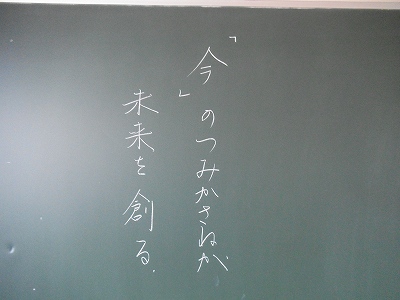 「今」のつみかさねが
未来を創る.